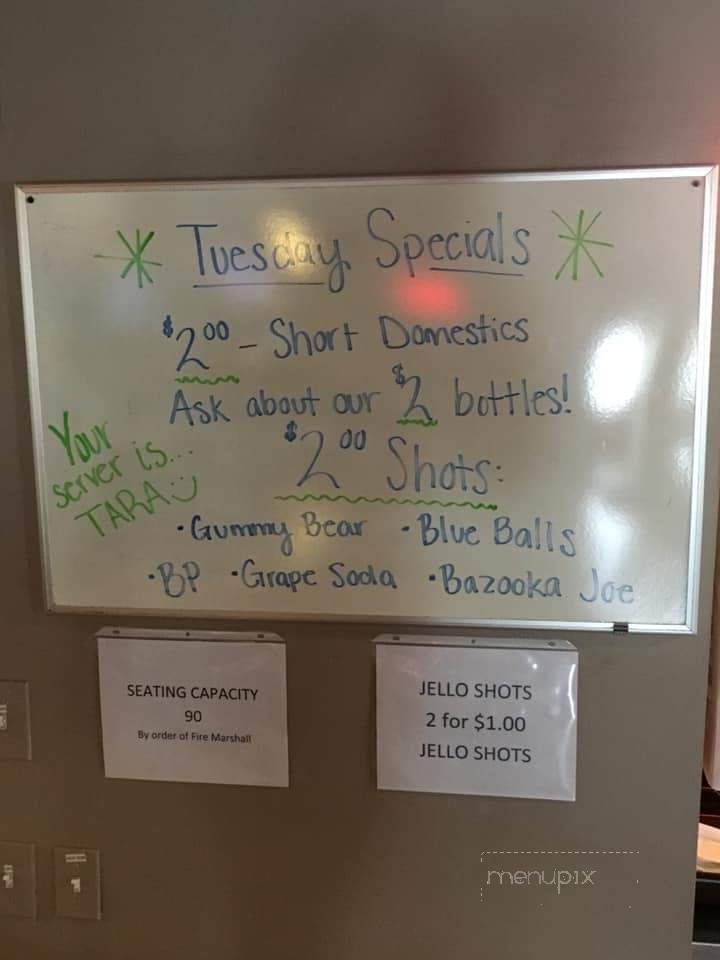 Tuesday Specials
$2.00 - Short Domestics
Ask about our $2 bottles!
$2.00 Shots:
• Gummy Bear • Blue Balls
• BP • Grape Soda • Bazooka Joe
Your
server is...
TARA
SEATING CAPACITY
90
By order of Fire Marshall
JELLO SHOTS
2 for $1.00
JELLO SHOTS
menupix